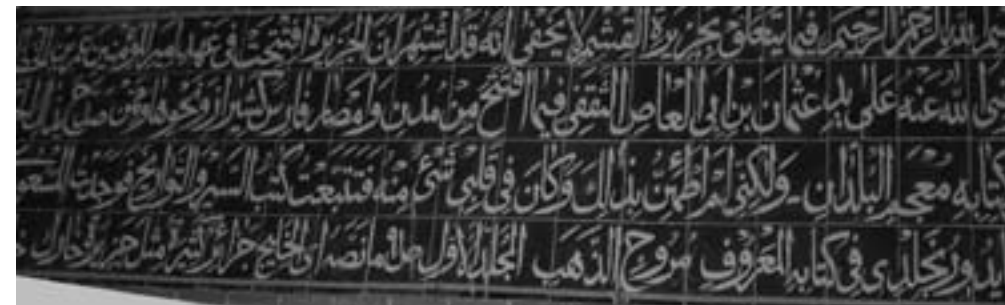 الله الرحمن الرحيم فيما يتعلق بجزيرة القشم لا يخفى انه قد اشتهر ان الجزيرة افتتحت في عهد امير المؤمنين عمر بن
الله عنه على يد عثمان بن ابي العاص الثقفي فيما افتتح من مدن وامصار فارس كشيراز ونحوها وممن صرح بذلك
كتابه معجم البلدان ولكني لم اطمئن بذلك وكان في قلبي شئ منه فتتبعت كتب السير والتواريخ فوجدت
في كتابه المعروف مروج الذهب المجلد الاول ما نصه اى الخليج جزائر كثيرة مثل جزيرة خارك